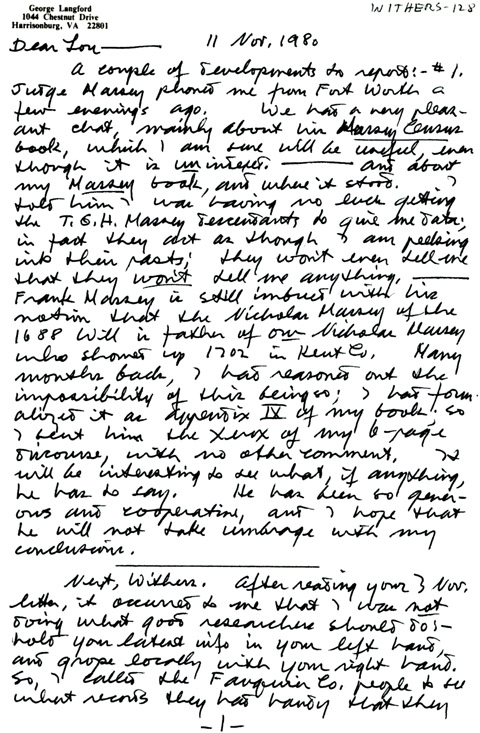 George Langford
1044 Chestnut Drive
Harrisonburg, VA 22801
WITHERS-128
Dear Lou — 11 Nov, 1980
A couple of developments to report:- #1.
Judge Massey phoned me from Fort Worth a
few evenings ago. We had a very pleas-
ant chat, mainly about his Massey Census
book, which I am sure will be useful, even
though it is unindexed. — and about
my Massey book, and where it stood. I
told him I was having no luck getting
the T.G.H. Massey descendants to give me data;
in fact they act as though I am peeking
into their pasts; they won't even tell me
that they won't tell me anything. —
Frank Massey is still imbued with his
notion that the Nicholas Massey of the
1688 Will is father of our Nicholas Massey
who showed up 1702 in Kent Co. Many
months back, I had reasoned out the
impossibility of this being so; I had form-
alized it as Appendix IV of my book. So
I sent him the Xerox of my 6-page
discourse, with no other comment. It
will be interesting to see what, if anything,
he has to say. He has been so gener-
ous and cooperative, and I hope that
he will not take umbrage with my
conclusions.
Next, Withers. After reading your 3 Nov.
letter, it occurred to me that I was not
doing what good researchers should do:-
hold your latest info in your left hand,
and grope locally with your right hand.
So, I called the Fauquier Co. people to see
what records they had handy that they
-1-